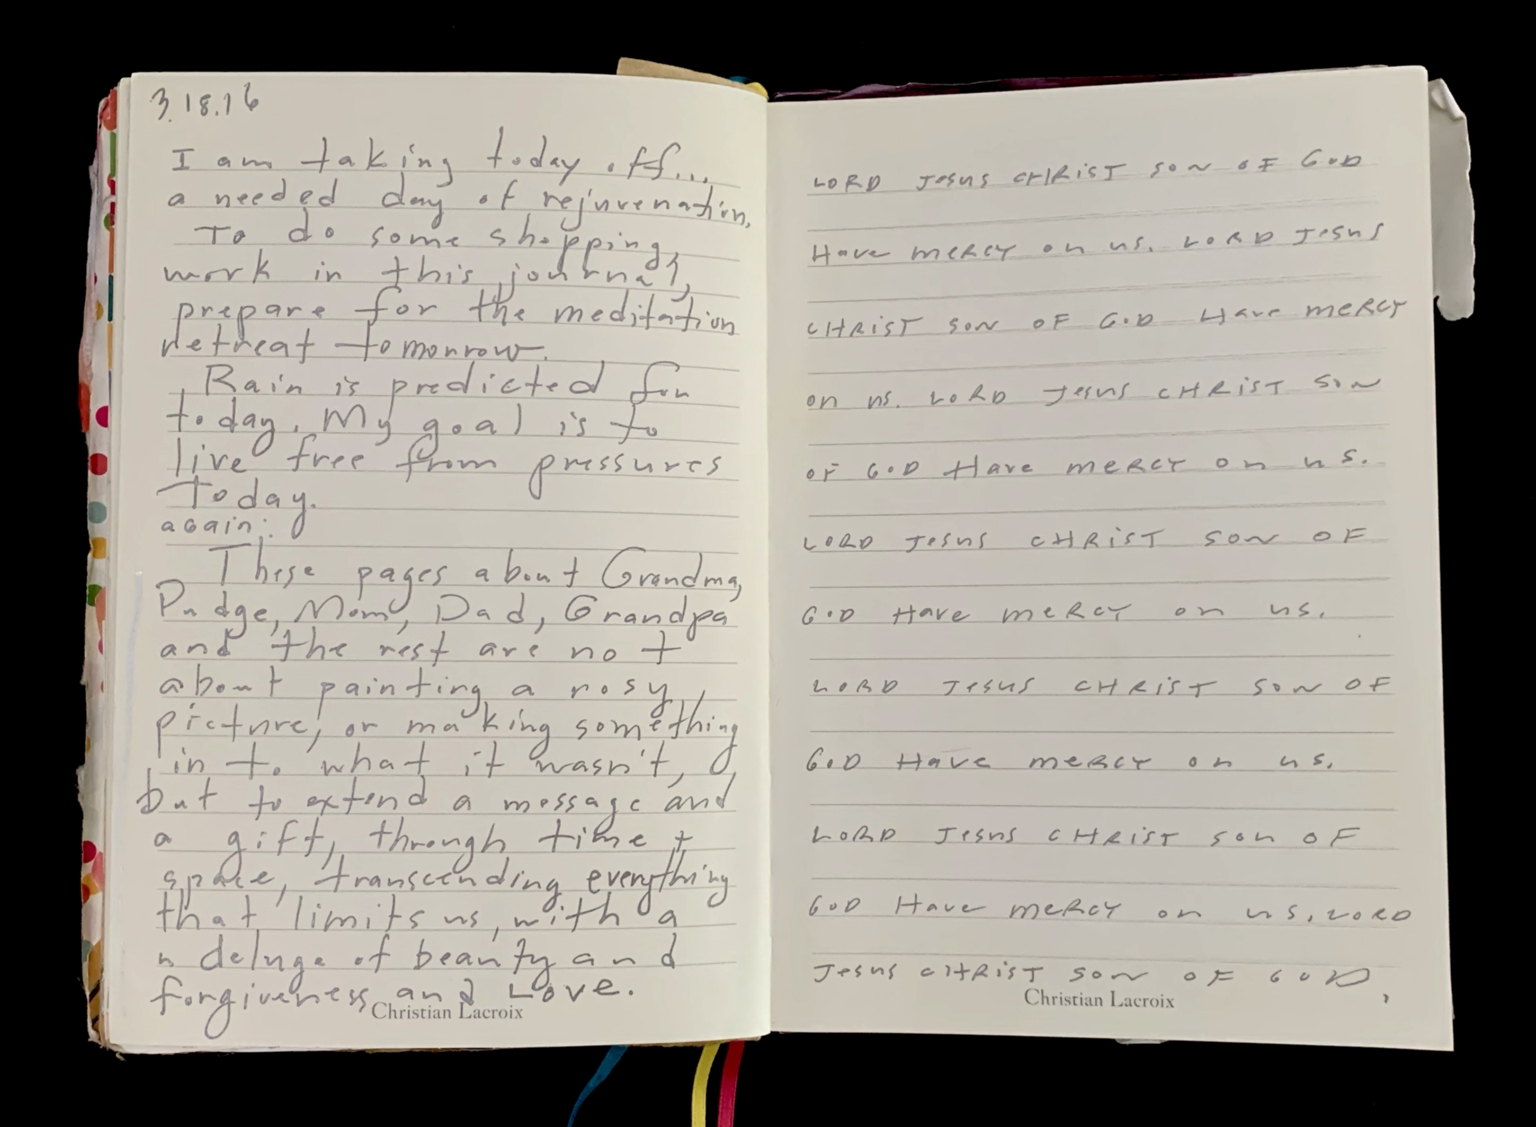 3.18.16
I am taking today off...
a needed day of rejuvenation.
To do some shopping,
work in this journal,
prepare for the meditation
retreat tomorrow.
Rain is predicted for
today. My goal is to
live free from pressures
Today.
again:
These pages about Grandma,
Pudge, Mom, Dad, Grandpa
and the rest are not
about painting a rosy
picture, or making something
in to what it wasn't,
but to extend a message and
a gift, through time +
space, transcending everything
that limits us, with a
deluge of beauty and
forgiveness and Love.
Christian Lacroix
LORD Jesus CHRiST Son OF GOD
Have meRCY on us. LORD Jesus
CHRiST Son OF GOD Have meRCY
on us. LORD Jesus CHRiST Son
OF GOD Have meRCY on us.
LORD Jesus CHRiST Son OF
GOD Have meRCY on us.
LORD Jesus CHRiST Son OF
GOD Have meRCY on us.
LORD Jesus CHRiST Son OF
GOD Have meRCY on us, LORD
Jesus CHRiST Son OF GOD,
Christian Lacroix